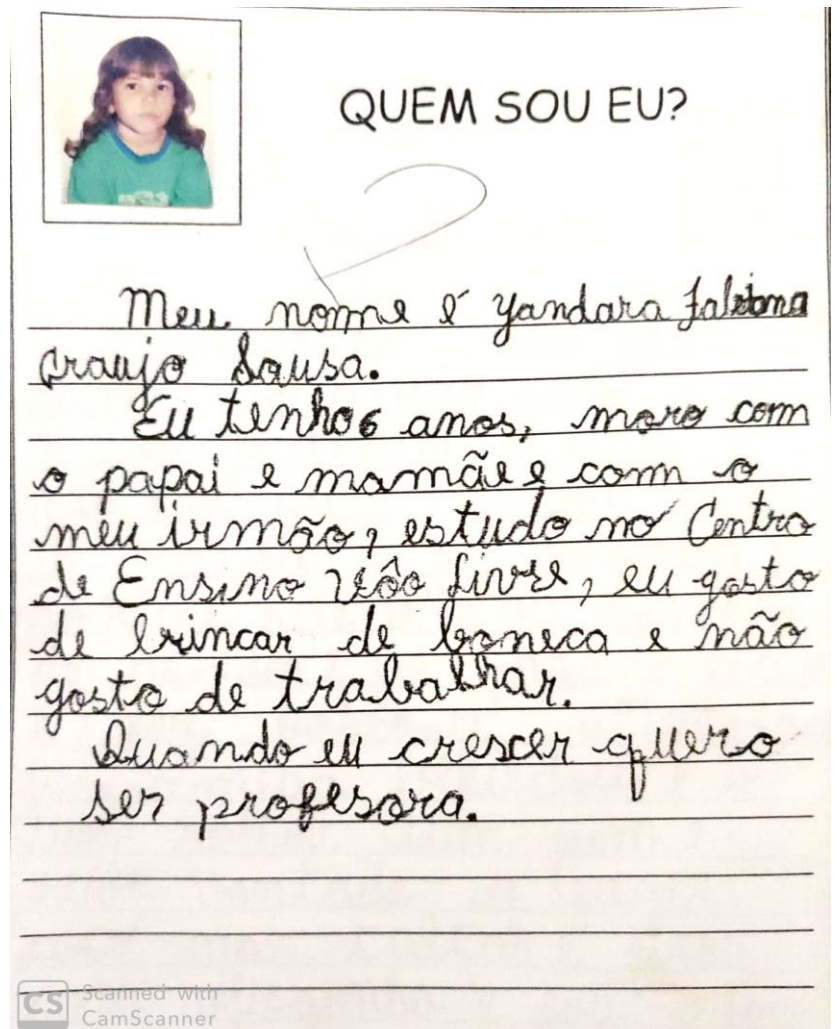 QUEM SOU EU?
Meu nome é Yandara
Araujo Sousa.
Eu tenho 6 anos, moro com
o papai e mamãe e com o
meu irmão, estudo no Centro
de Ensino Vôo Livre, eu gosto
de brincar de boneca e não
gosto de trabalhar.
Quando eu crescer quero
ser profesora.
CS Scanned with
CamScanner